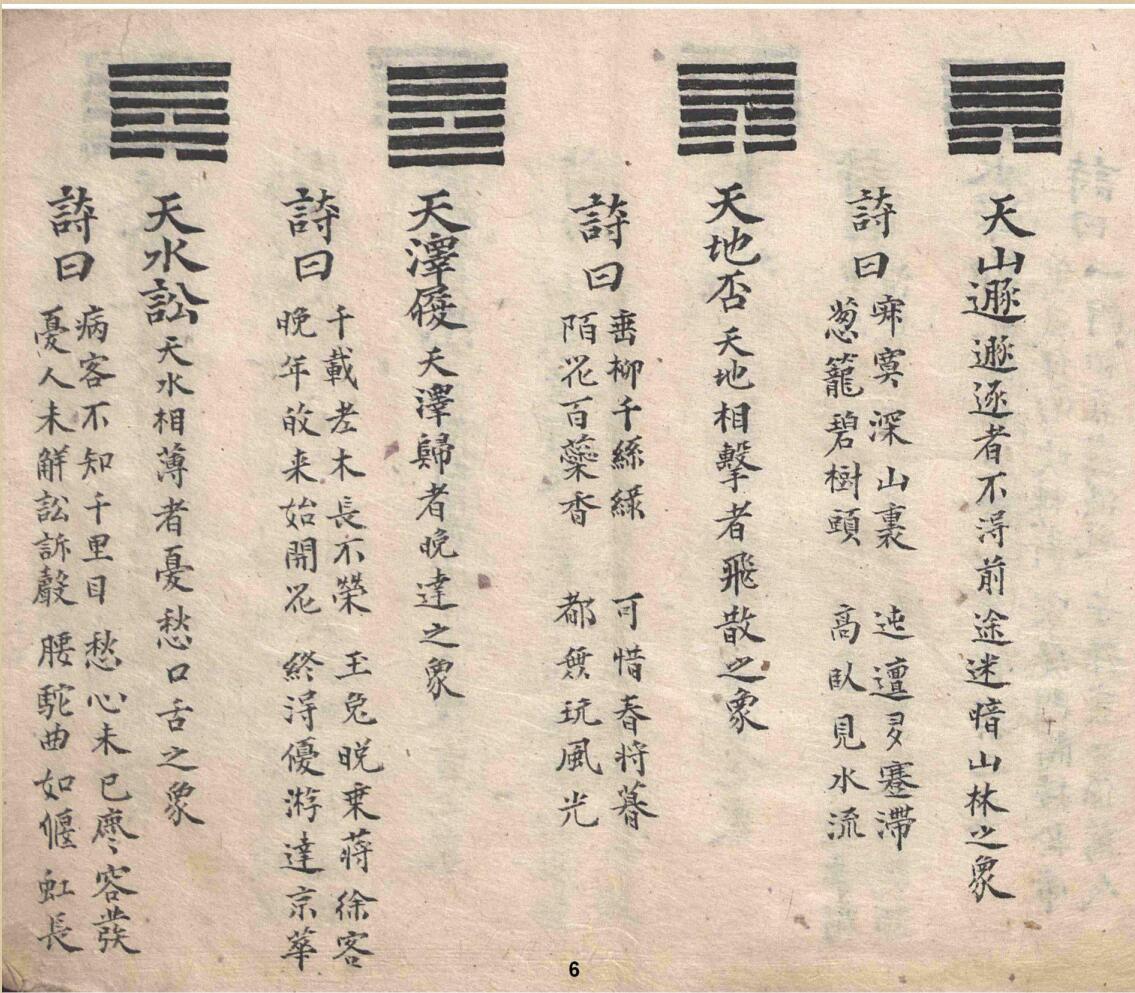 天山遯 遯逐者不淂前途迷暗山林之象
詩曰
寂寞深山裏 迍邅多蹇滯
葱籠碧樹頭 高臥見水流
天地否 天地相擊者飛散之象
詩曰
垂柳千絲綠 可惜春將暮
陌花百蘂香 都無玩風光
天澤履 天澤歸者晚達之象
詩曰
千載老木長不榮 玉兔晚乗蔣徐客
晚年故来始開花 終淂優游達京華
天水訟 天水相薄者憂愁口舌之象
詩曰
病客不知千里目 愁心未已廖容發
憂人未解訟訴聲 腰駝曲如偃虹長
6